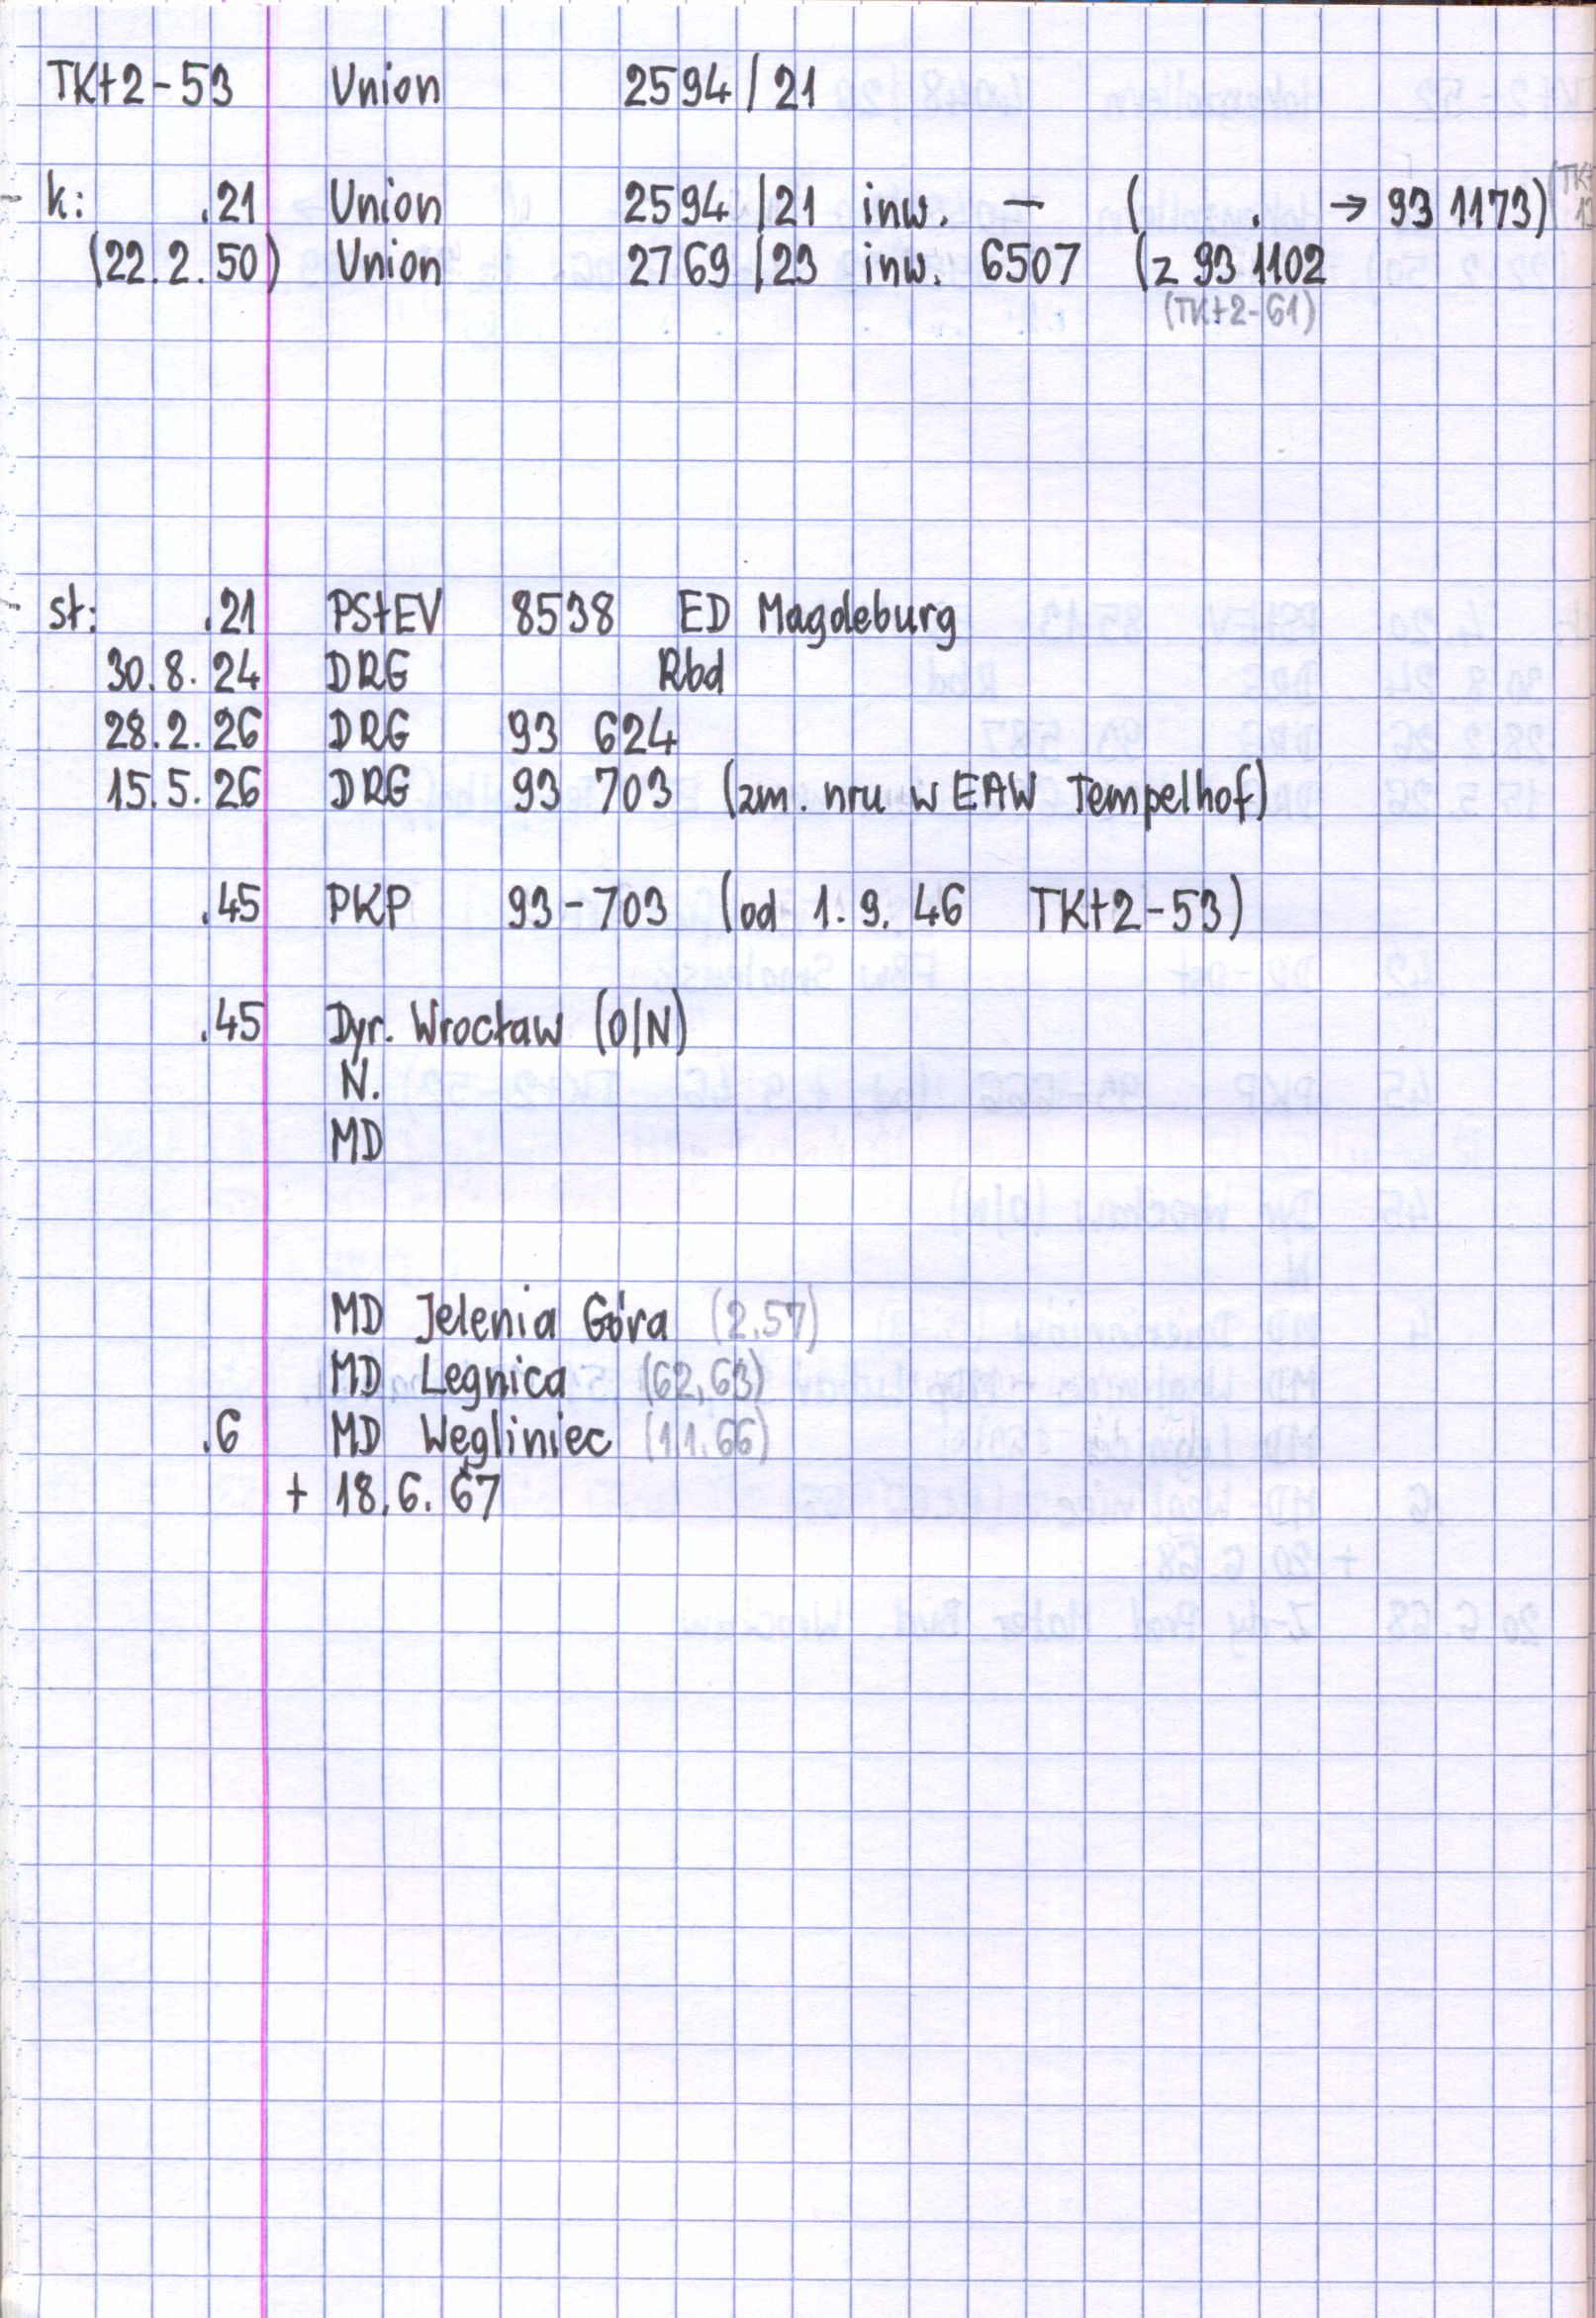 TKt2-53 Union 2594/21
- k: .21 Union 2594/21 inw. — ( . → 93 1173) (TKt
(22.2.50) Union 2769/23 inw. 6507 (z 93 1102
(TKt2-61)
- st: .21 PStEV 8538 ED Magdeburg
30.8.24 DRG Rbd
28.2.26 DRG 93 624
15.5.26 DRG 93 703 (zm. nru w EAW Tempelhof)
.45 PKP 93-703 (od 1.9.46 TKt2-53)
.45 Dyr. Wrocław (O/N)
N.
MD
MD Jelenia Góra (2.57)
MD Legnica (62,63)
.6 MD Węgliniec (11.66)
+ 18.6.67